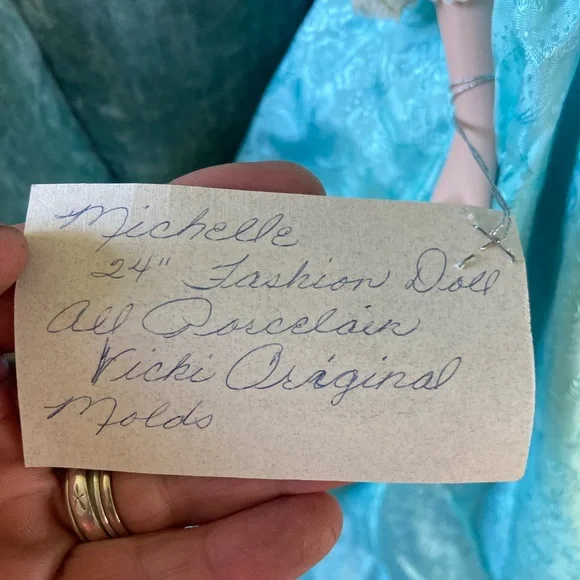 Michelle
24" Fashion Doll
All Porcelain
Vicki Original
Molds